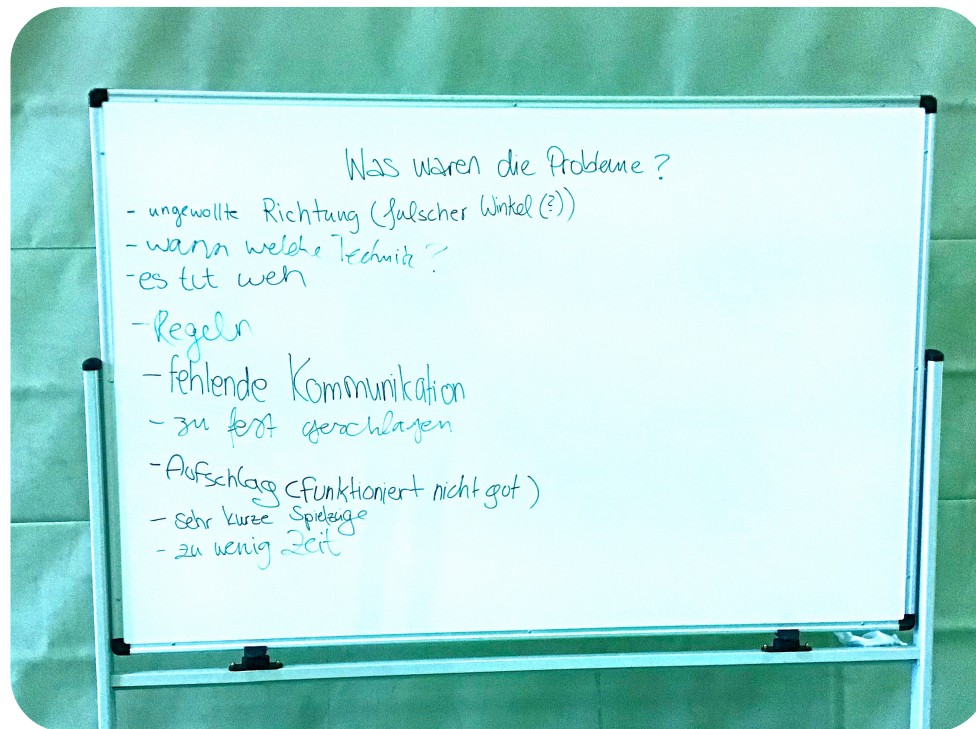 Was waren die Probleme?
- ungewollte Richtung (falscher Winkel (?))
- wann welche Technik?
- es tut weh
- Regeln
- fehlende Kommunikation
- zu fest geschlagen
- Aufschlag (funktioniert nicht gut)
- sehr kurze Spielzüge
- zu wenig Zeit